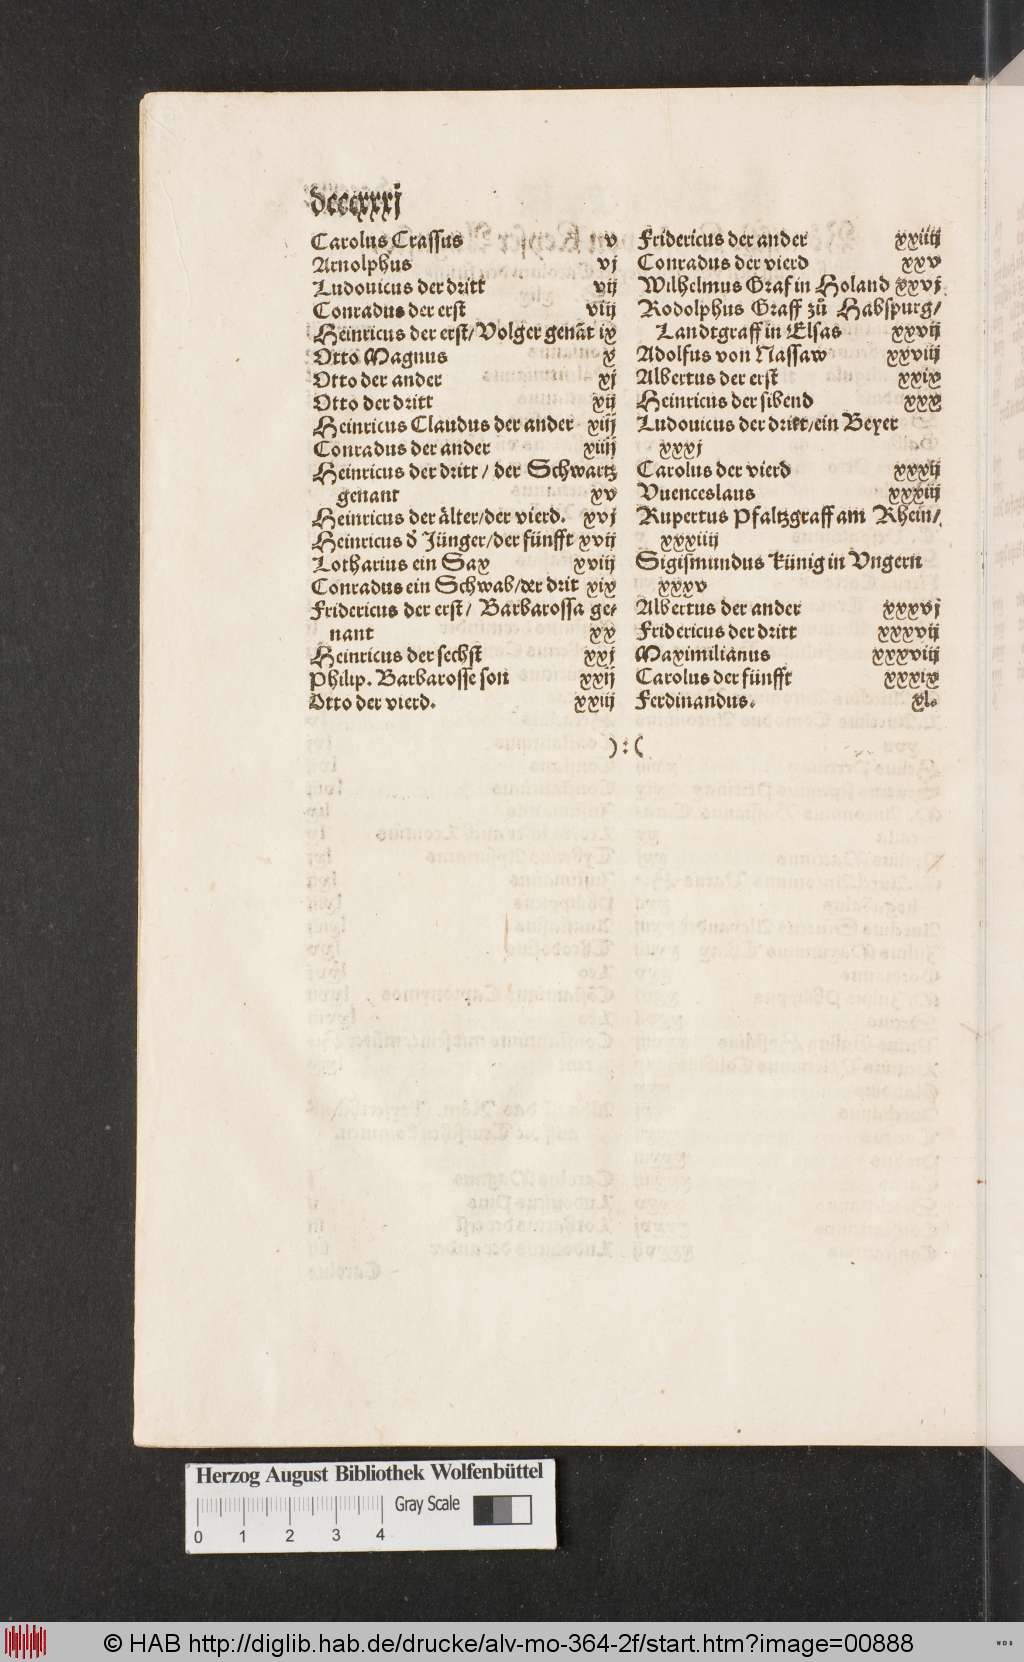 dcccxxxj
Carolus Crassus v
Arnolphus vj
Ludouicus der dritt vij
Conradus der erst viij
Heinricus der erst/ Volger genāt ix
Otto Magnus x
Otto der ander xj
Otto der dritt xij
Heinricus Claudus der ander xiij
Conradus der ander xiiij
Heinricus der dritt / der Schwartz
genant xv
Heinricus der älter/der vierd. xvj
Heinricus d̕ Jünger/der fünfft xvij
Lotharius ein Sax xviij
Conradus ein Schwab/der drit xix
Fridericus der erst/ Barbarossa ge⸗
nant xx
Heinricus der sechst xxj
Philip. Barbarosse son xxij
Otto der vierd. xxiij
Fridericus der ander xxiiij
Conradus der vierd xxv
Wilhelmus Graf in Holand xxvj
Rodolphus Graff zů Habspurg/
Landtgraff in Elsas xxvij
Adolfus von Nassaw xxviij
Albertus der erst xxix
Heinricus der sibend xxx
Ludouicus der dritt/ein Beyer
xxxj
Carolus der vierd xxxij
Vuenceslaus xxxiij
Rupertus Pfaltzgraff am Rhein/
xxxiiij
Sigismundus künig in Vngern
xxxv
Albertus der ander xxxvj
Fridericus der dritt xxxvij
Maximilianus xxxviij
Carolus der fünfft xxxix
Ferdinandus. xl.
):(
Herzog August Bibliothek Wolfenbüttel
Gray Scale
0 1 2 3 4
© HAB http://diglib.hab.de/drucke/alv-mo-364-2f/start.htm?image=00888